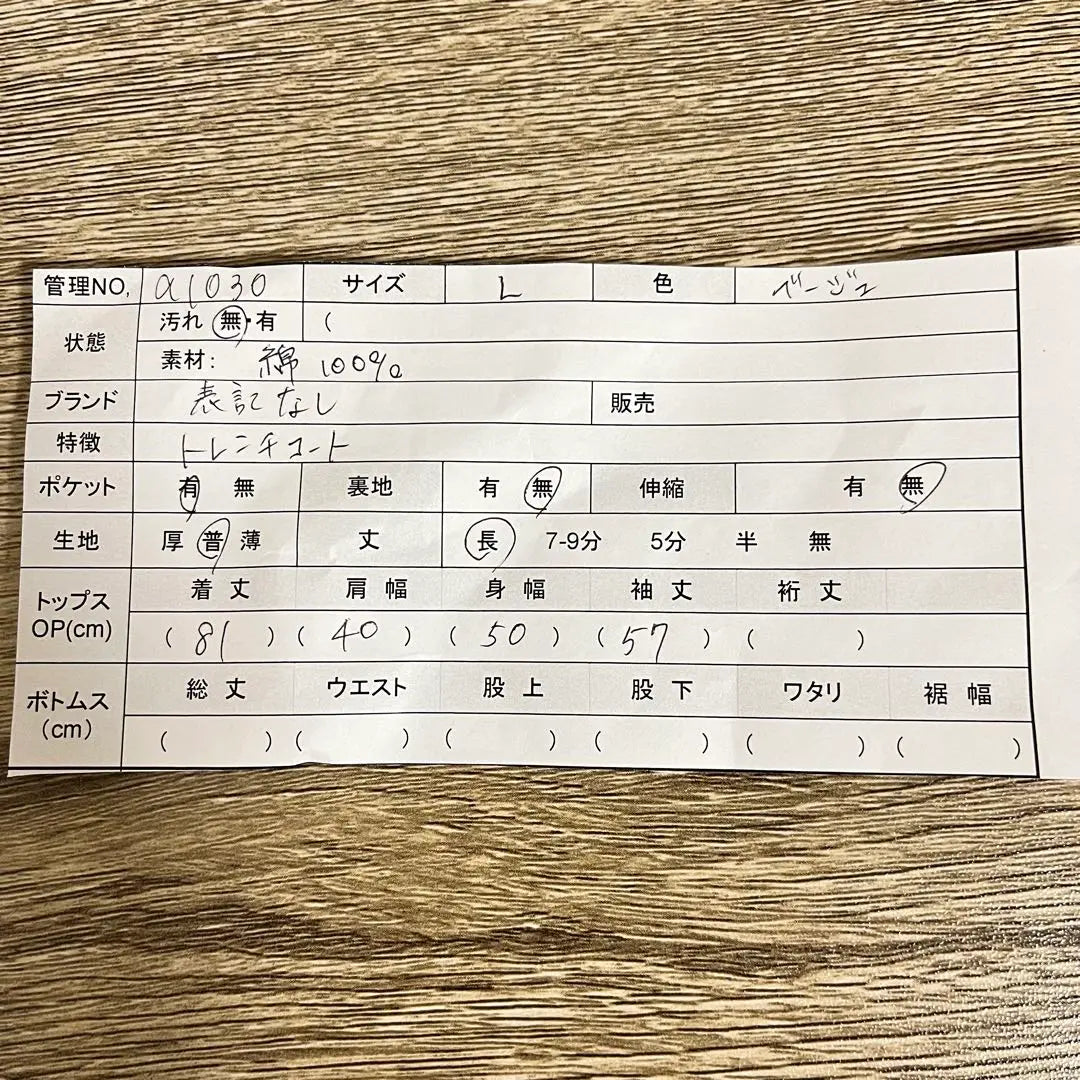 管理NO, a1030 サイズ L 色 ベージュ
状態 汚れ 無・有 (
素材: 綿 100%
ブランド 表記なし 販売
特徴 トレンチコート
ポケット 有 無 裏地 有 無 伸縮 有 無
生地 厚 普 薄 丈 長 7-9分 5分 半 無
トップス OP(cm) 着丈 肩幅 身幅 袖丈 裄丈
(81) (40) (50) (57) ( )
ボトムス (cm) 総丈 ウエスト 股上 股下 ワタリ 裾幅
( ) ( ) ( ) ( ) ( ) ( )